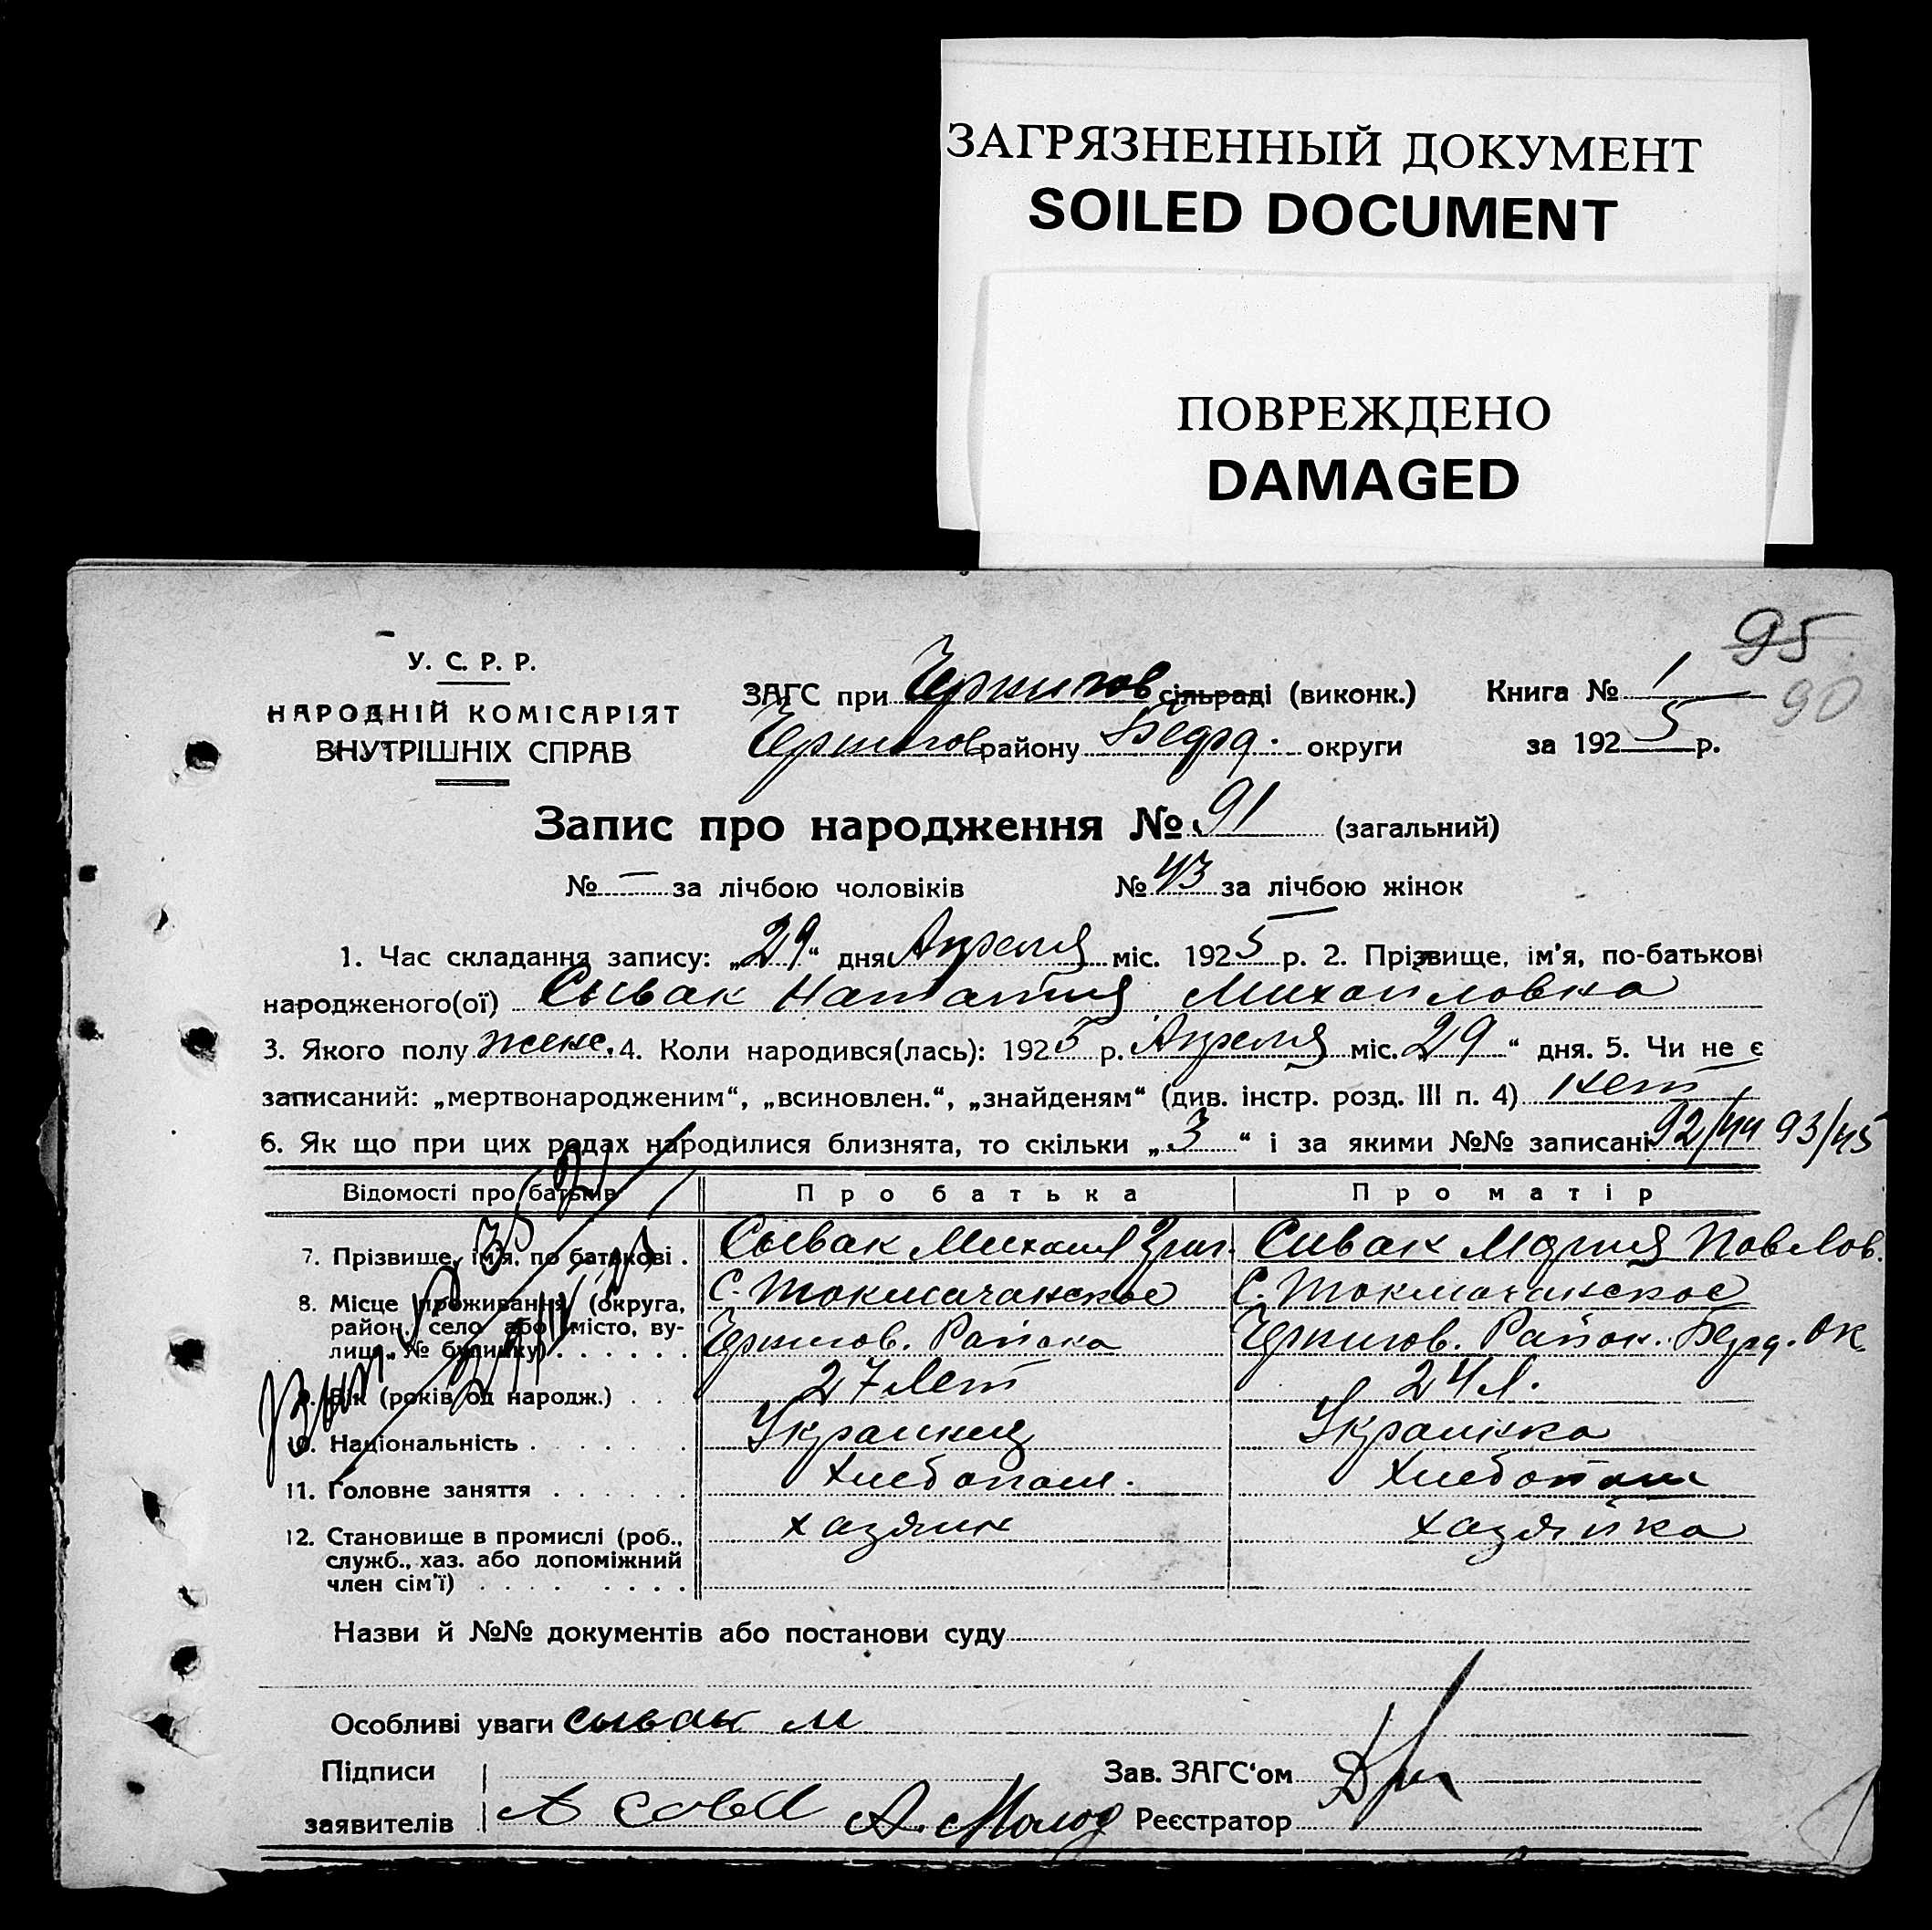 ЗАГРЯЗНЕННЫЙ ДОКУМЕНТ
SOILED DOCUMENT
ПОВРЕЖДЕНО
DAMAGED
95
90
У. С. Р. Р.
НАРОДНІЙ КОМІСАРІЯТ
ВНУТРІШНІХ СПРАВ
ЗАГС при Чернигов сільраді (виконк.) Книга № 1
Чернигов району Бердя. округи за 1925 р.
Запис про народження № 91 (загальний)
№ — за лічбою чоловіків № 43 за лічбою жінок
1. Час складання запису: „29“ дня Апреля міс. 1925 р. 2. Прізвище, ім'я, по-батькові
народженого(ої) Сывак Наталия Михайловна
3. Якого полу женс. 4. Коли народився(лась): 1925 р. Апреля міс. 29“ дня. 5. Чи не є
записаний: „мертвонародженим“, „всиновлен.“, „знайденям“ (див. інстр. розд. III п. 4) нет
6. Як що при цих родах народилися близнята, то скільки „3“ і за якими №№ записані 92/44 93/45
Відомості про батьків Про батька Про матір
7. Прізвище, ім'я, по батькові . Сывак Михаил Григ. Сивак Мария Павлов.
8. Місце проживання (округа, район, село або місто, вулиця, № будинку) С. Токмачанское С. Токмачанское
Чернигов. Района Чернигов. Район. Бердя. Ок.
9. Вік (років од народж.) 27 лет 24 л.
10. Національність Украинец Украинка
11. Головне заняття Хлебопаш. Хлебопаш
12. Становище в промислі (роб., служб., хаз. або допоміжний член сім'ї) хазяин хазяйка
Назви й №№ документів або постанови суду
Особливі уваги сывак м
Підписи Зав. ЗАГС'ом
заявителів Реєстратор